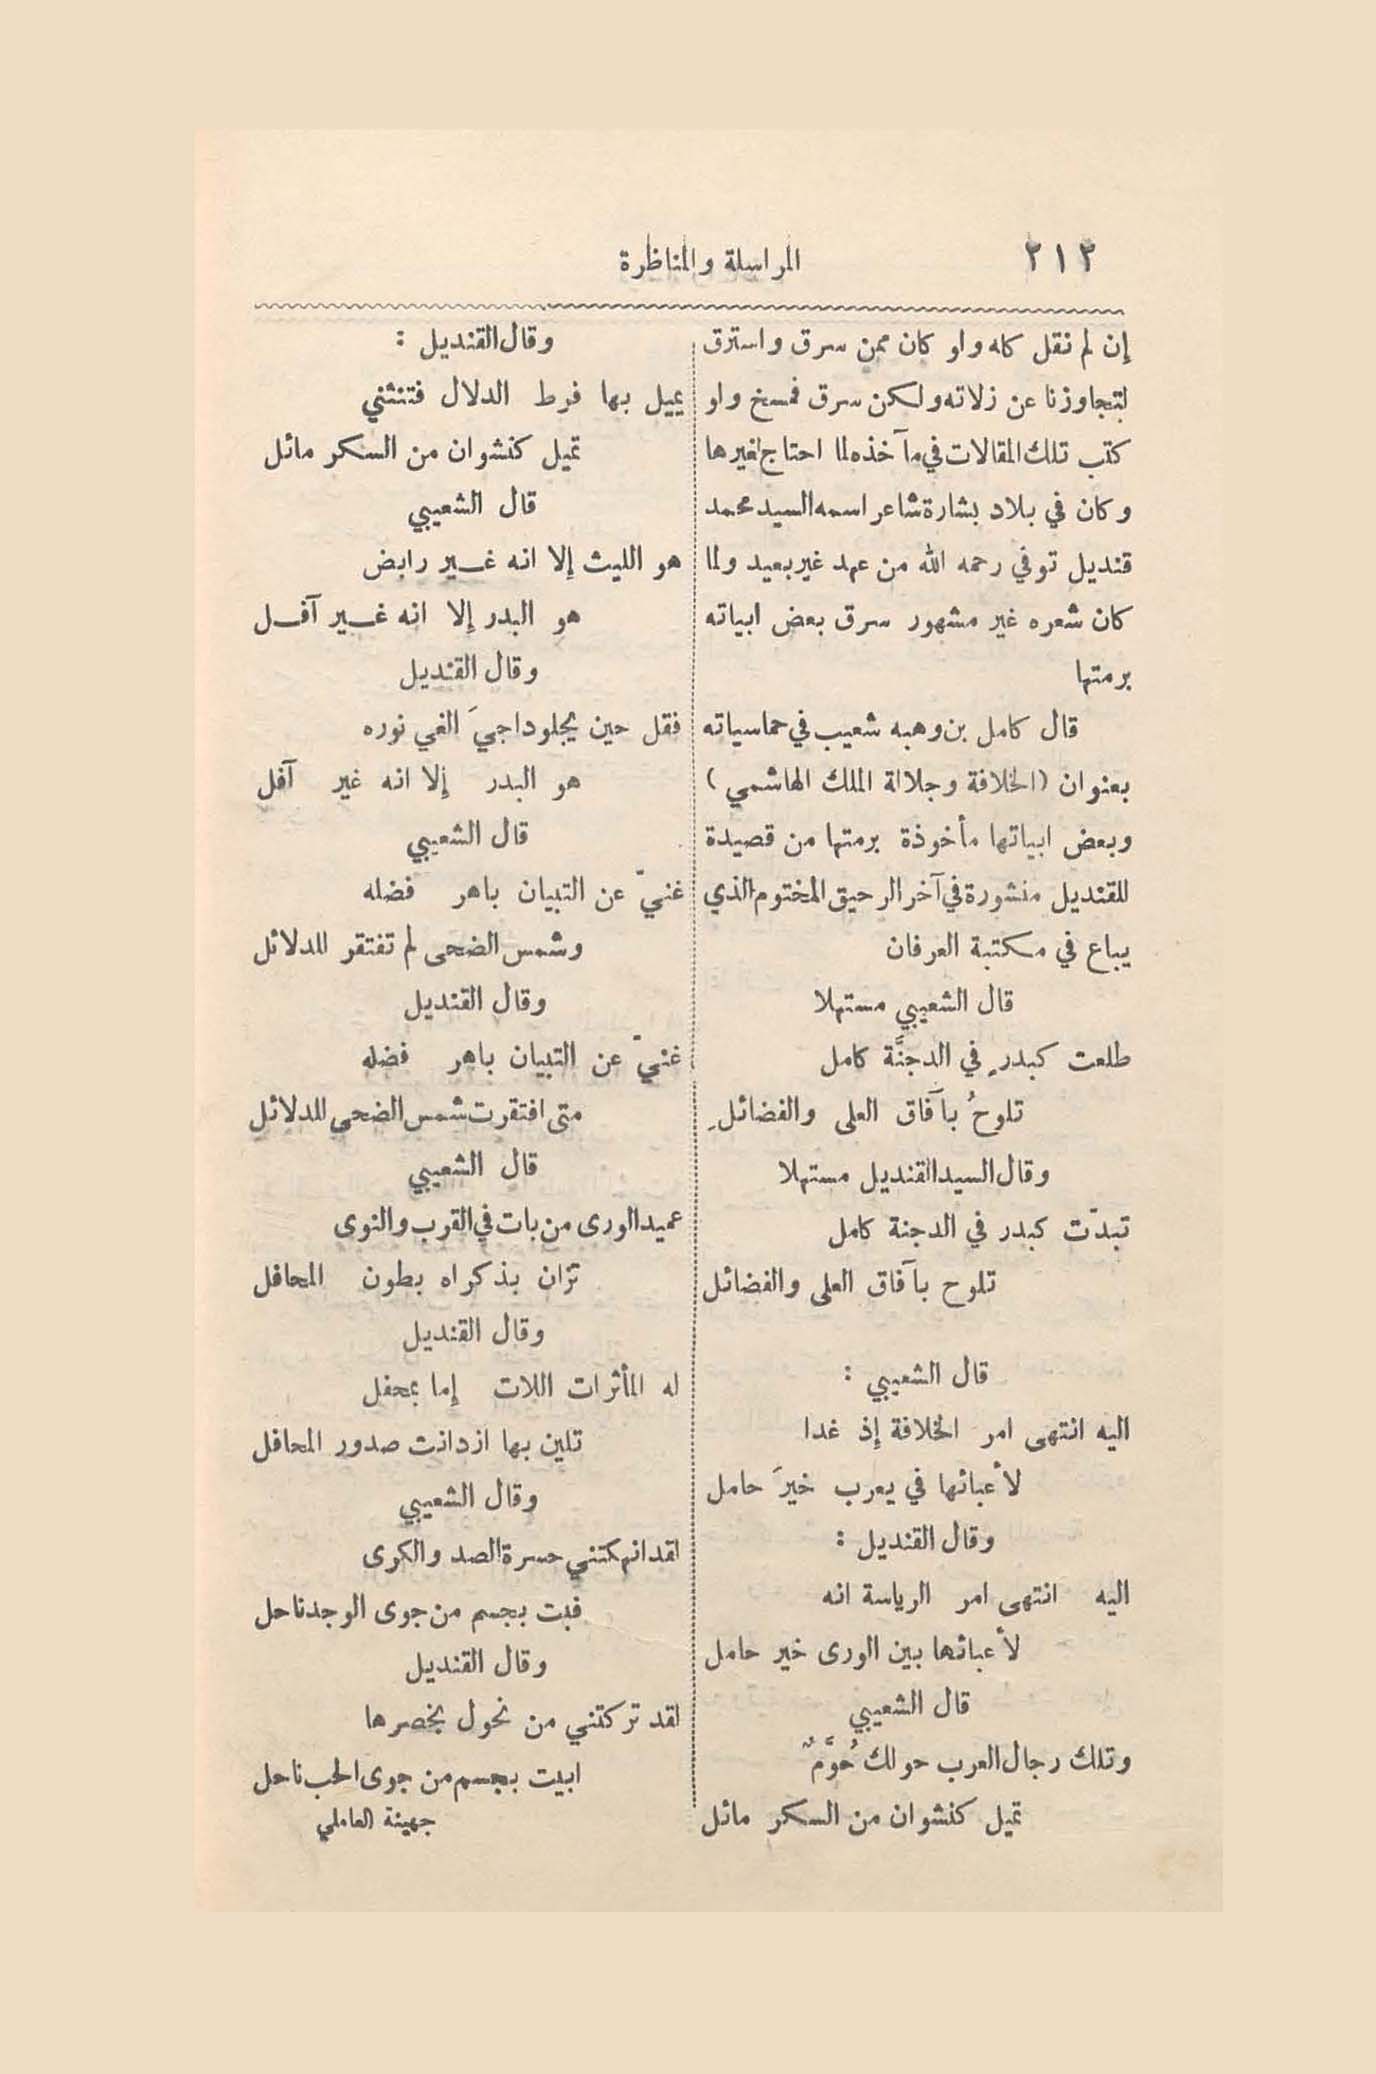 ٢١٢
المراسلة والمناظرة
إن لم نقل كله ولو كان ممن سرق واسترق
لتجاوزنا عن زلاته ولكن سرق فمسخ ولو
كتب تلك المقالات في مآخذه لما احتاج لغيرها
وكان في بلاد بشارة شاعر اسمه السيد محمد
قنديل توفي رحمه الله من عهد غير بعيد ولما
كان شعره غير مشهور سرق بعض ابياته
برمتها
قال كامل بن وهبه شعيب في حماسياته
بعنوان (الخلافة وجلالة الملك الهاشمي)
وبعض ابياتها مأخوذة برمتها من قصيدة
للقنديل منشورة في آخر الرحيق المختوم الذي
يباع في مكتبة العرفان
قال الشعيبي مستهلا
طلعت كبدرٍ في الدجنَّة كامل
تلوحُ بآفاق العلى والفضائلِ
وقال السيد القنديل مستهلا
تبدّت كبدر في الدجنة كامل
تلوح بآفاق العلى والفضائل
قال الشعيبي :
اليه انتهى امر الخلافة إذ غدا
لأعبائها في يعرب خيرَ حامل
وقال القنديل :
اليه انتهى امر الرياسة انه
لأعبائها بين الورى خير حامل
قال الشعيبي
وتلك رجال العرب حولك حُوَّمٌ
تميل كنشوان من السكر مائل
وقال القنديل :
يميل بها فرط الدلال فتنثني
تميل كنشوان من السكر مائل
قال الشعيبي
هو الليث إلا انه غير رابض
هو البدر إلا انه غير آفل
وقال القنديل
فقل حين يجلو داجيَ الغي نوره
هو البدر إلا انه غير آفل
قال الشعيبي
غنيّ عن التبيان باهر فضله
وشمس الضحى لم تفتقر للدلائل
وقال القنديل
غنيّ عن التبيان باهر فضله
متى افتقرت شمس الضحى للدلائل
قال الشعيبي
عميد الورى من بات في القرب والنوى
تزان بذكراه بطون المحافل
وقال القنديل
له المأثرات اللات إما بمحفل
تلين بها ازدانت صدور المحافل
وقال الشعيبي
لقد انهكتني حسرة الصد والكرى
فبت بجسم من جوى الوجد ناحل
وقال القنديل
لقد تركتني من نحول بخصرها
ابيت بجسم من جوى الحب ناحل
جهينة العاملي